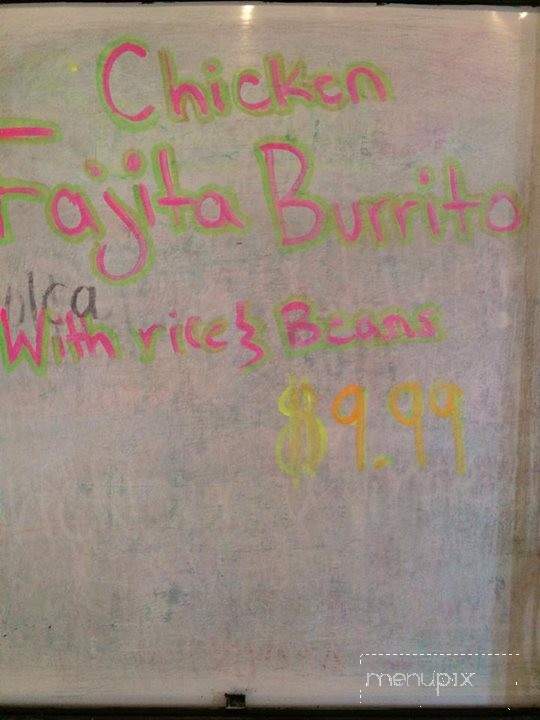 Chicken
Fajita Burrito
With rice & Beans
$9.99
menupix